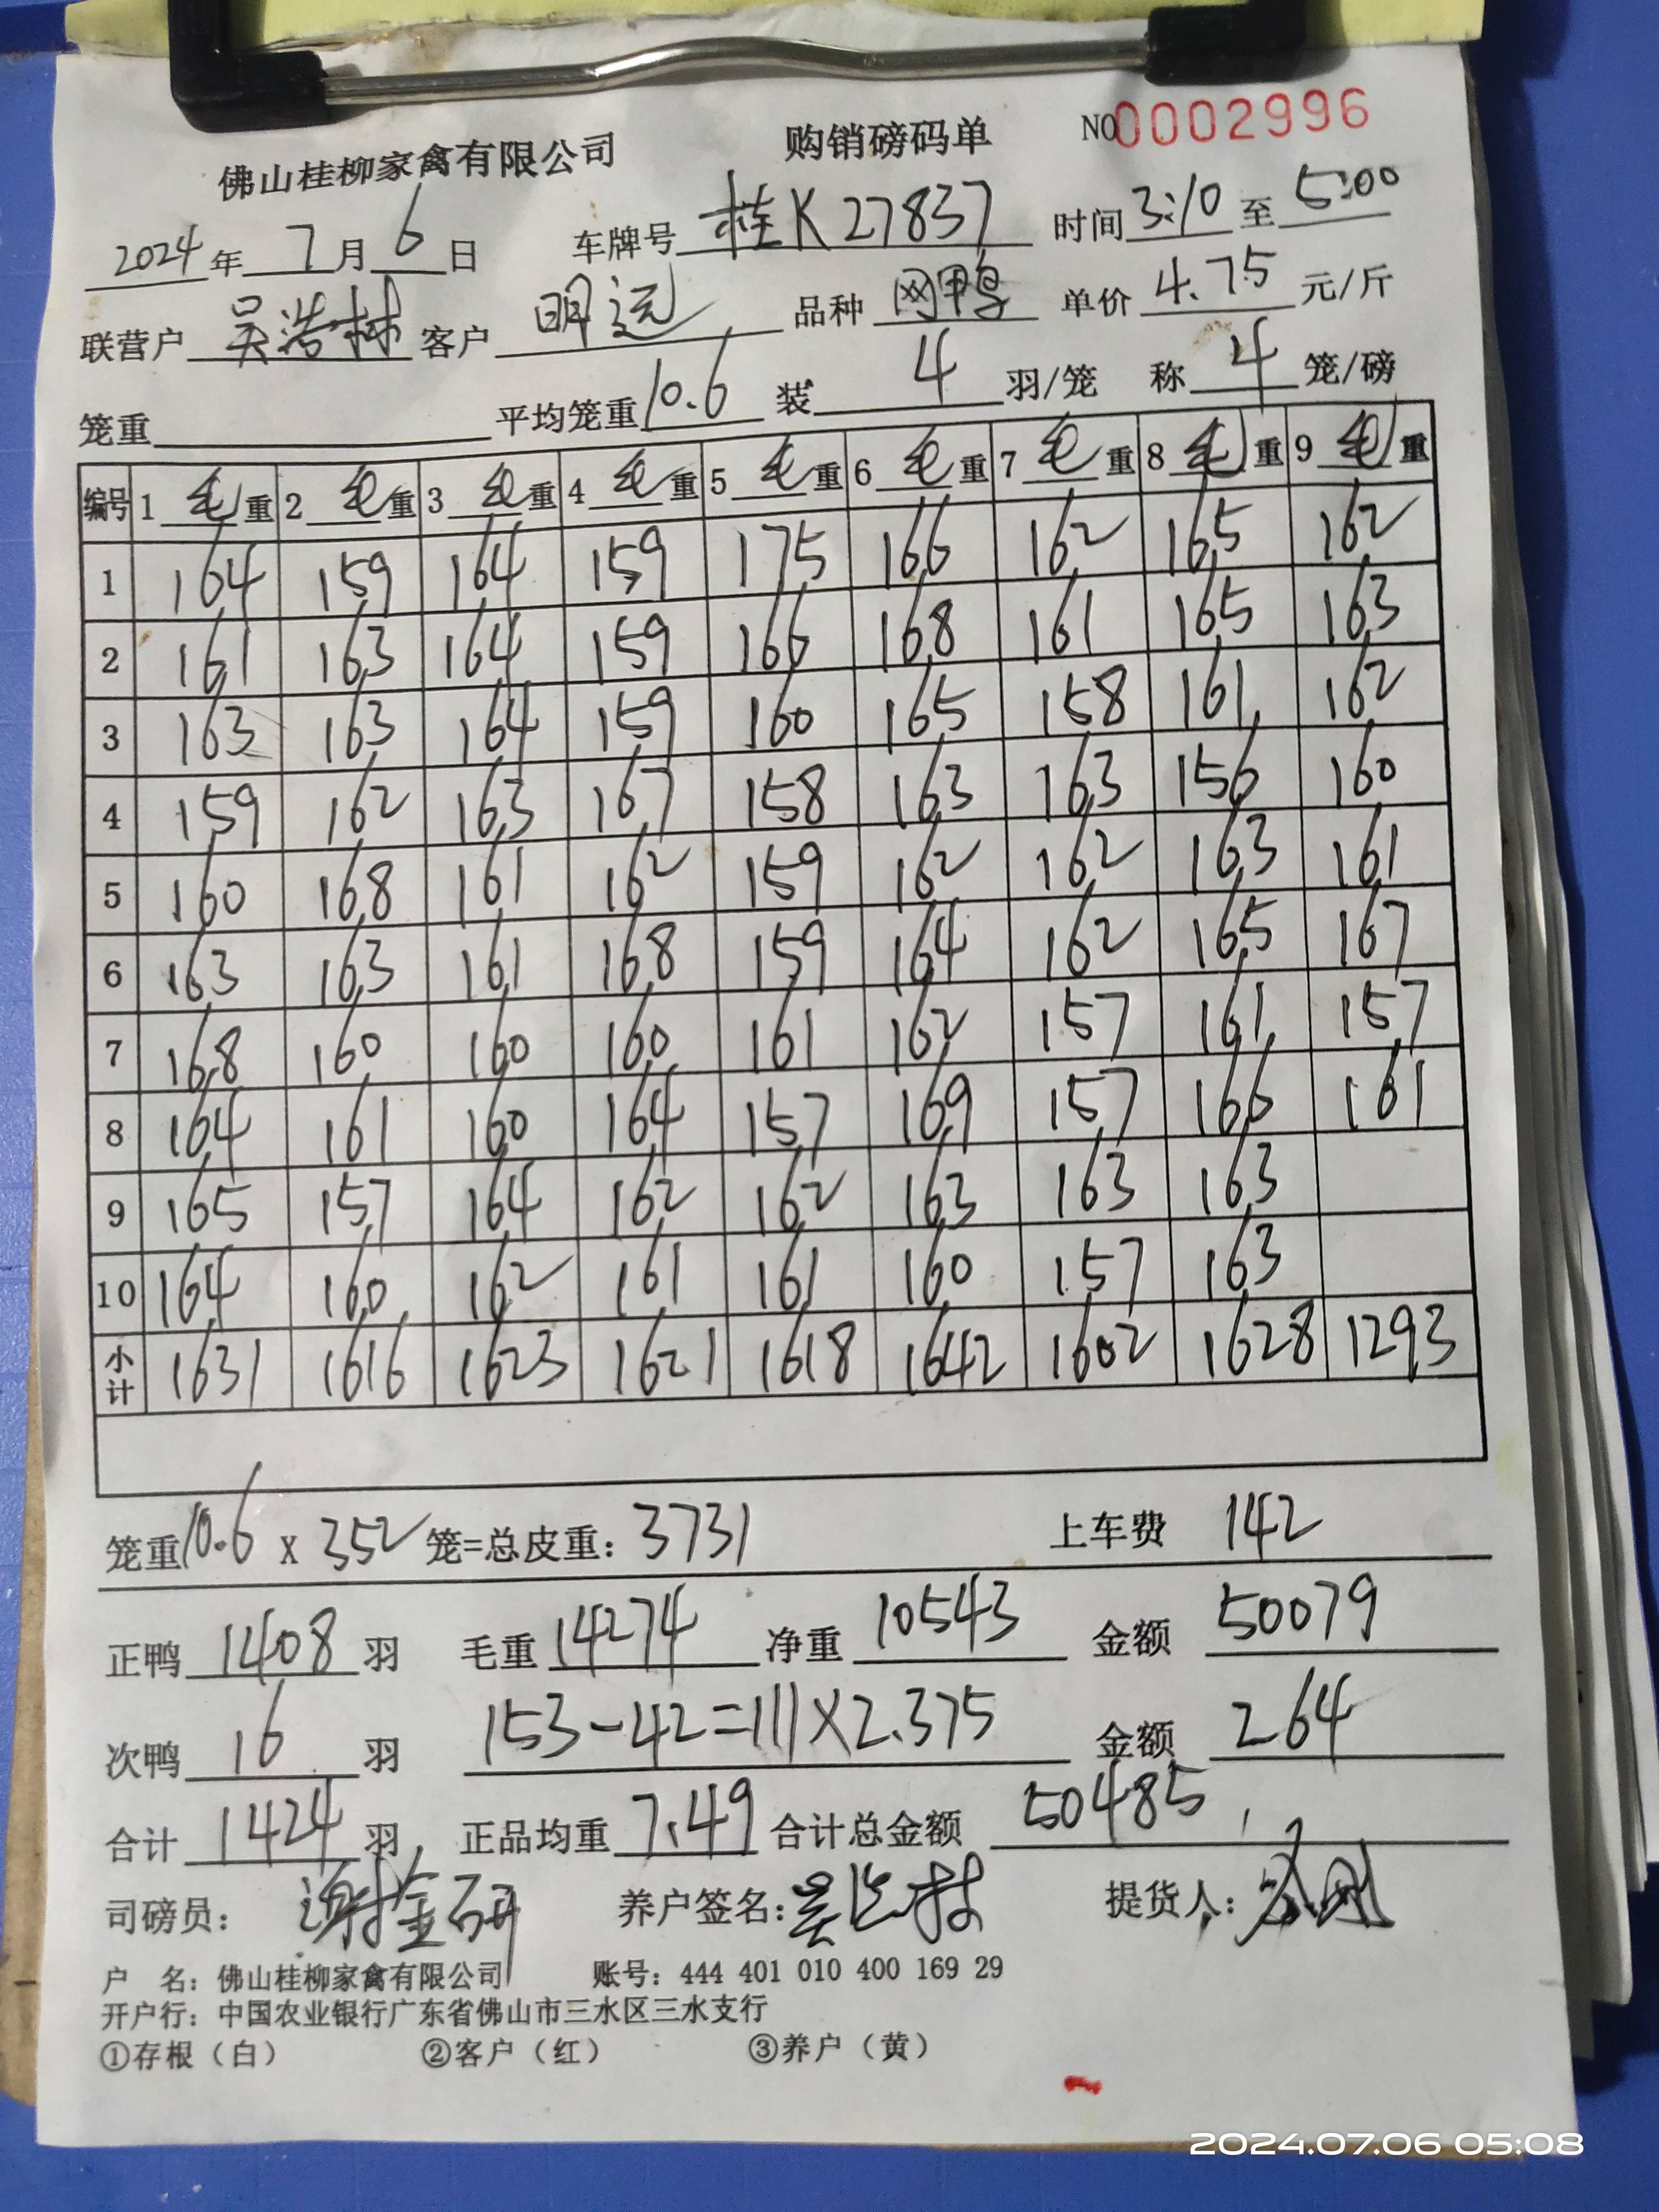 佛山桂柳家禽有限公司 购销磅码单 NO 0002996
2024年 7月 6日 车牌号 桂K27837 时间 3:10 至 5:00
联营户 吴浩林 客户 明远 品种 网鸭 单价 4.75 元/斤
笼重 平均笼重 10.6 装 4 羽/笼 称 4 笼/磅
编号 1 毛重 2 毛重 3 毛重 4 毛重 5 毛重 6 毛重 7 毛重 8 毛重 9 毛重
1 164 159 164 159 175 166 162 165 162
2 161 163 164 159 166 168 161 165 163
3 163 163 164 159 160 165 158 161 162
4 159 162 163 167 158 163 163 156 160
5 160 168 161 162 159 162 162 163 161
6 163 163 161 168 159 164 162 165 167
7 168 160 160 160 161 162 157 161 157
8 164 161 160 164 157 169 157 166 161
9 165 157 164 162 162 163 163 163
10 164 160 162 161 161 160 157 163
小计 1631 1616 1623 1621 1618 1642 1602 1628 1293
笼重 10.6 X 352 笼=总皮重: 3731 上车费 142
正鸭 1408 羽 毛重 14274 净重 10543 金额 50079
次鸭 16 羽 153-42=111×2.375 金额 264
合计 1424 羽 正品均重 7.49 合计总金额 50485
司磅员: 谢金研 养户签名: 提货人:
户 名: 佛山桂柳家禽有限公司 账号: 444 401 010 400 169 29
开户行: 中国农业银行广东省佛山市三水区三水支行
①存根（白） ②客户（红） ③养户（黄）
2024.07.06 05:08